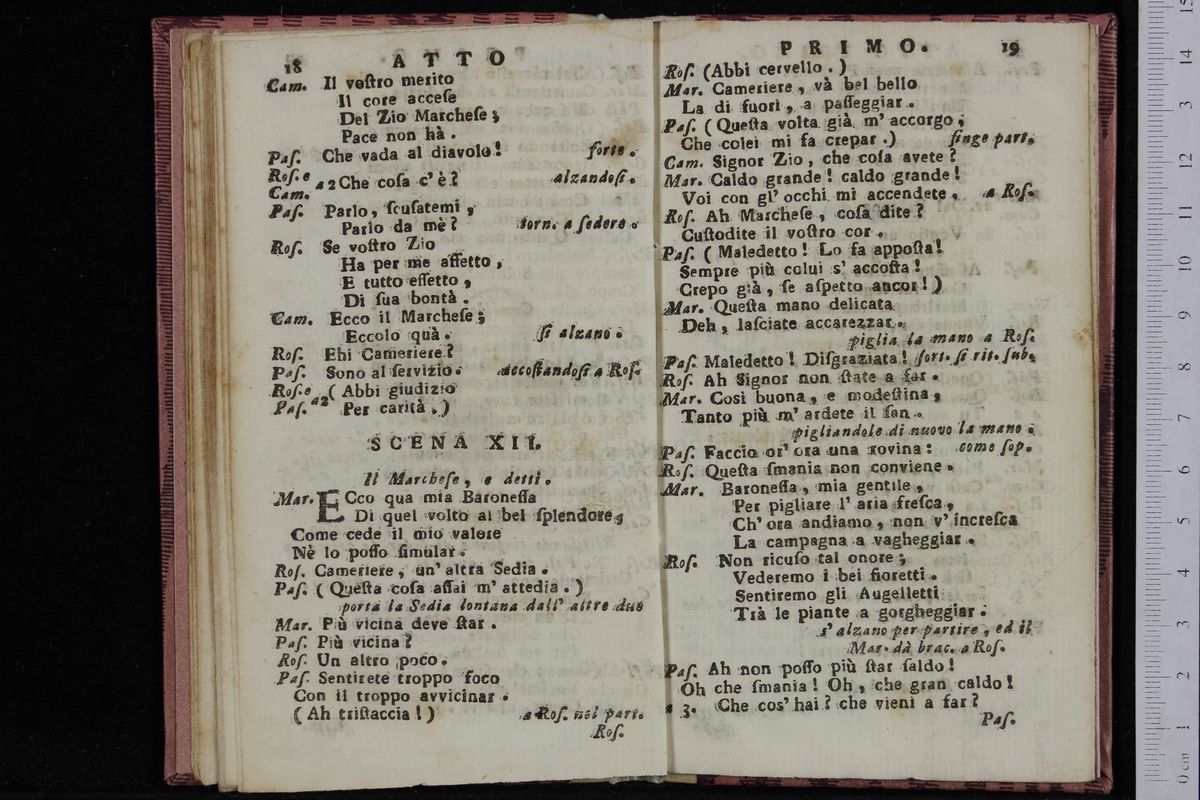 18 ATTO
Cam. Il voſtro merito
Il core acceſe
Del Zio Marcheſe;
Pace non hà.
Paſ. Che vada al diavolo! forte.
Roſ. e
Cam. a 2 Che coſa c'è? alzandoſi.
Paſ. Parlo, ſcuſatemi,
Parlo da mè? torn. a ſedere.
Roſ. Se voſtro Zio
Ha per me affetto,
E tutto effetto,
Di ſua bontà.
Cam. Ecco il Marcheſe;
Eccolo quà. ſi alzano.
Roſ. Ehi Cameriere?
Paſ. Sono al ſervizio. accoſtandoſi a Roſ.
Roſ. e
Paſ. a2 (Abbi giudizio
Per carità.)
SCENA XII.
Il Marcheſe, e detti.
Mar. ECco qua mia Baroneſſa
Di quel volto al bel ſplendore,
Come cede il mio valore
Nè lo poſſo ſimular.
Roſ. Cameriere, un' altra Sedia.
Paſ. (Queſta coſa aſſai m' attedia.)
porta la Sedia lontana dall' altre due
Mar. Più vicina deve ſtar.
Paſ. Più vicina?
Roſ. Un altro poco.
Paſ. Sentirete troppo foco
Con il troppo avvicinar.
(Ah triſtaccia!) a Roſ. nel part.
Roſ.
PRIMO. 19
Roſ. (Abbi cervello.)
Mar. Cameriere, và bel bello
La di fuori, a paſſeggiar.
Paſ. (Queſta volta già m' accorgo,
Che colei mi fa crepar.) finge part.
Cam. Signor Zio, che coſa avete?
Mar. Caldo grande! caldo grande!
Voi con gl' occhi mi accendete. a Roſ.
Roſ. Ah Marcheſe, coſa dite?
Cuſtodite il voſtro cor.
Paſ. (Maledetto! Lo fa appoſta!
Sempre più colui s' accoſta!
Crepo già, ſe aſpetto ancor!)
Mar. Queſta mano delicata
Deh, laſciate accarezzar.
piglia la mano a Roſ.
Paſ. Maledetto! Diſgraziata! ſort. ſi rit. ſub.
Roſ. Ah Signor non ſtate a far.
Mar. Così buona, e modeſtina,
Tanto più m' ardete il ſen.
pigliandole di nuovo la mano.
Paſ. Faccio or' ora una rovina: come ſop.
Roſ. Queſta ſmania non conviene.
Mar. Baroneſſa, mia gentile,
Per pigliare l' aria freſca,
Ch' ora andiamo, non v' increſca
La campagna a vagheggiar.
Roſ. Non ricuſo tal onore;
Vederemo i bei fioretti.
Sentiremo gli Augelletti
Trà le piante a gorgheggiar.
s' alzano per partire, ed il
Mar. dà brac. a Roſ.
Paſ. Ah non poſſo più ſtar ſaldo!
Oh che ſmania! Oh, che gran caldo!
a 3. Che cos' hai? che vieni a far?
Paſ.
0 cm 1 2 3 4 5 6 7 8 9 10 11 12 13 14 15